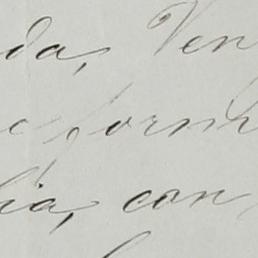 da, Ven
e form
lia, con